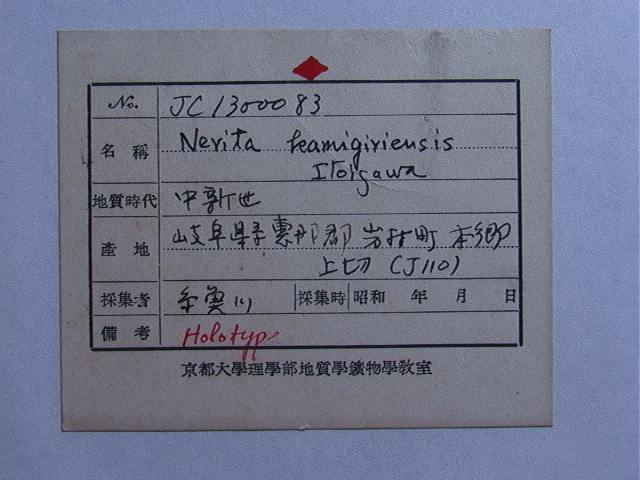 No. JC1300083
名稱 Nerita kamigiriensis
Itoigawa
地質時代 中新世
產地 岐阜県恵那郡 岩村町 本郷
上切 (J110)
採集者 糸魚川 採集時 昭和 年 月 日
備考 Holotype
京都大學理學部地質學鑛物學教室